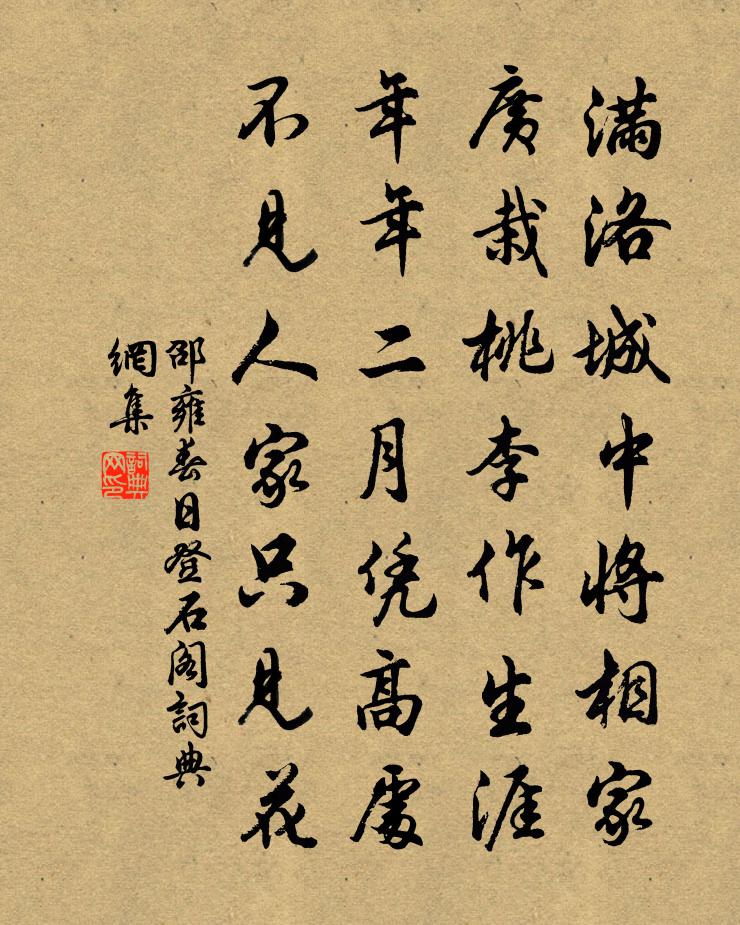 滿洛城中將相家
廣栽桃李作生涯
年年二月凭高處
不見人家只見花
邵雍春日登石阁詞典
網集
詞典
网印